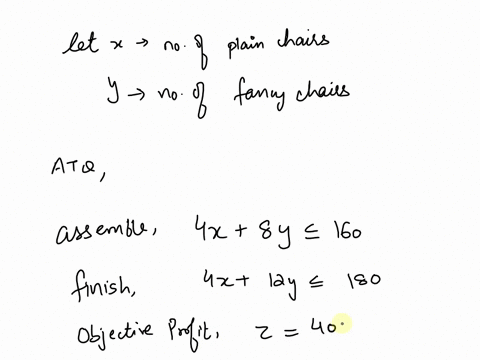 let x → no. of plain chairs
y → no. of fancy chairs
ATQ,
assemble, 4x + 8y ≤ 160
finish, 4x + 12y ≤ 180
Objective Profit, z = 40